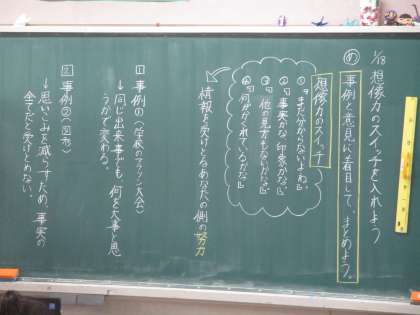 1/18 想像力のスイッチを入れよう
め 事例と意見に着目して、まとめよう。
想像力のスイッチ
①『まだ分からないよね。』
②『事実かな、印象かな。』
③『他の見方もないかな。』
④『何がかくれているかな。』
情報を受けとるあなたの側の努力
1 事例①(学校のマラソン大会)
→同じ出来事でも、何を大事と思
うかで変わる。
2 事例②(図形)
→思いこみを減らすため、事実の
全てだと受けとめない。